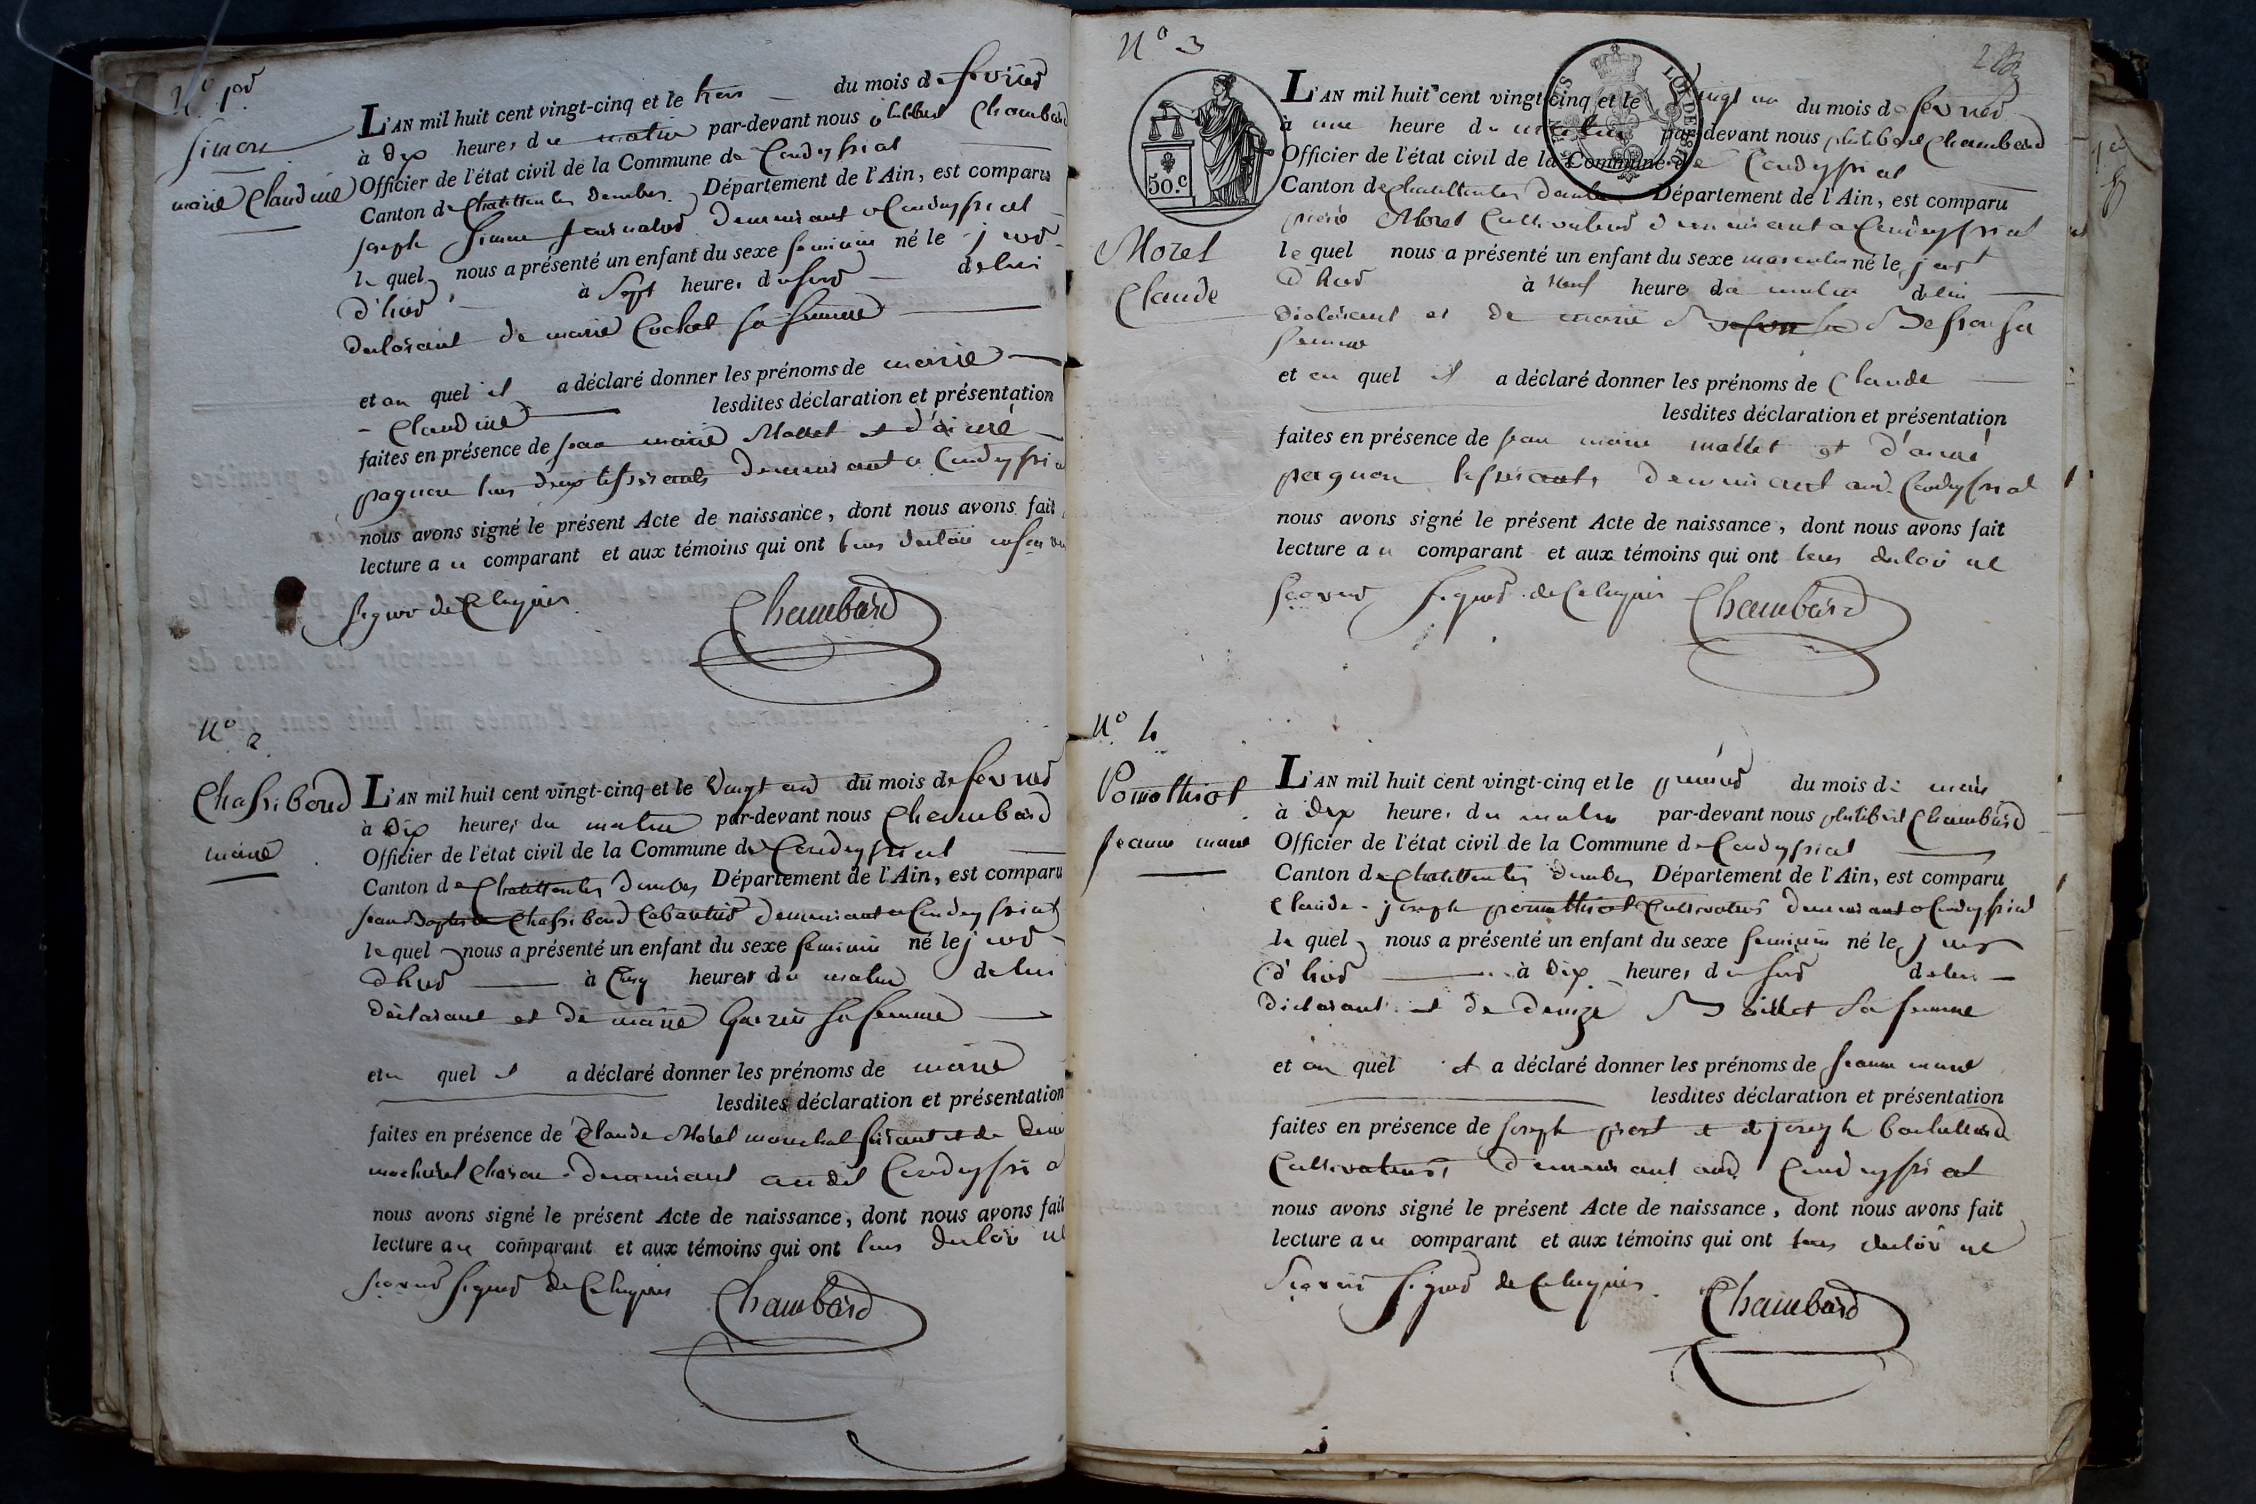 N.o 1er
Simon
marie Claudine
L'AN mil huit cent vingt-cinq et le trois du mois de fevrier
à dix heures du matin par-devant nous philibert Chambard
Officier de l'état civil de la Commune de Condeyssiat
Canton de Chatillon les dombes Département de l'Ain, est comparu
joseph Simon journalier demeurant a Condeyssiat
le quel nous a présenté un enfant du sexe feminin né le jour
d'hier à Sept heures du soir de lui
declarant de marie Cochet sa femme
et au quel il a déclaré donner les prénoms de marie
Claudine lesdites déclaration et présentation
faites en présence de jean marie Mallet et d'aimé
pagnon tous deux demeurant a Condeyssiat
nous avons signé le présent Acte de naissance, dont nous avons fait
lecture au comparant et aux témoins qui ont tous declaré
signer de Ce enquis
Chambard
N.o 2
Chassiboud
marie
L'AN mil huit cent vingt-cinq et le vingt un du mois de fevrier
à dix heures du matin par-devant nous Chambard
Officier de l'état civil de la Commune de Condeyssiat
Canton de Chatillon les dombes Département de l'Ain, est comparu
jean Baptiste Chassiboud Cabaretier demeurant a Condeyssiat
le quel nous a présenté un enfant du sexe feminin né le jour
d'hier à Cinq heures du matin de lui
déclarant et de marie Guerin sa femme
et au quel il a déclaré donner les prénoms de marie
lesdites déclaration et présentation
faites en présence de Claude Morel marechal ferrant et de
demeurant audit Condeyssiat
nous avons signé le présent Acte de naissance, dont nous avons fait
lecture au comparant et aux témoins qui ont tous declaré ne
scavoir signer de Ce enquis
Chambard
N.o 3
50.C
LOI DE 1816
Morel
Claude
L'AN mil huit cent vingt-cinq et le vingt un du mois de fevrier
à une heure du matin par-devant nous philibert Chambard
Officier de l'état civil de la Commune de Condeyssiat
Canton de Chatillon les dombes Département de l'Ain, est comparu
pierre Morel Cultivateur demeurant a Condeyssiat
le quel nous a présenté un enfant du sexe masculin né le jour
d'hier à neuf heure du matin de lui
déclarant et de marie sa
femme
et au quel il a déclaré donner les prénoms de Claude
lesdites déclaration et présentation
faites en présence de jean marie mallet et d'aimé
pagnon demeurant aud. Condeyssiat
nous avons signé le présent Acte de naissance, dont nous avons fait
lecture au comparant et aux témoins qui ont tous declaré ne
scavoir signer de Ce enquis
Chambard
N.o 4
Pomathiot
jeanne marie
L'AN mil huit cent vingt-cinq et le premier du mois de mars
à dix heures du matin par-devant nous philibert Chambard
Officier de l'état civil de la Commune de Condeyssiat
Canton de Chatillon les dombes Département de l'Ain, est comparu
Claude joseph pomathiot Cultivateur demeurant a Condeyssiat
le quel nous a présenté un enfant du sexe feminin né le jour
d'hier à dix heures du soir de lui
déclarant et de Denize Millet Sa femme
et au quel il a déclaré donner les prénoms de jeanne marie
lesdites déclaration et présentation
faites en présence de joseph prost et de joseph
Cultivateurs demeurant aud. Condeyssiat
nous avons signé le présent Acte de naissance, dont nous avons fait
lecture au comparant et aux témoins qui ont tous declaré ne
scavoir signer de Ce enquis
Chambard